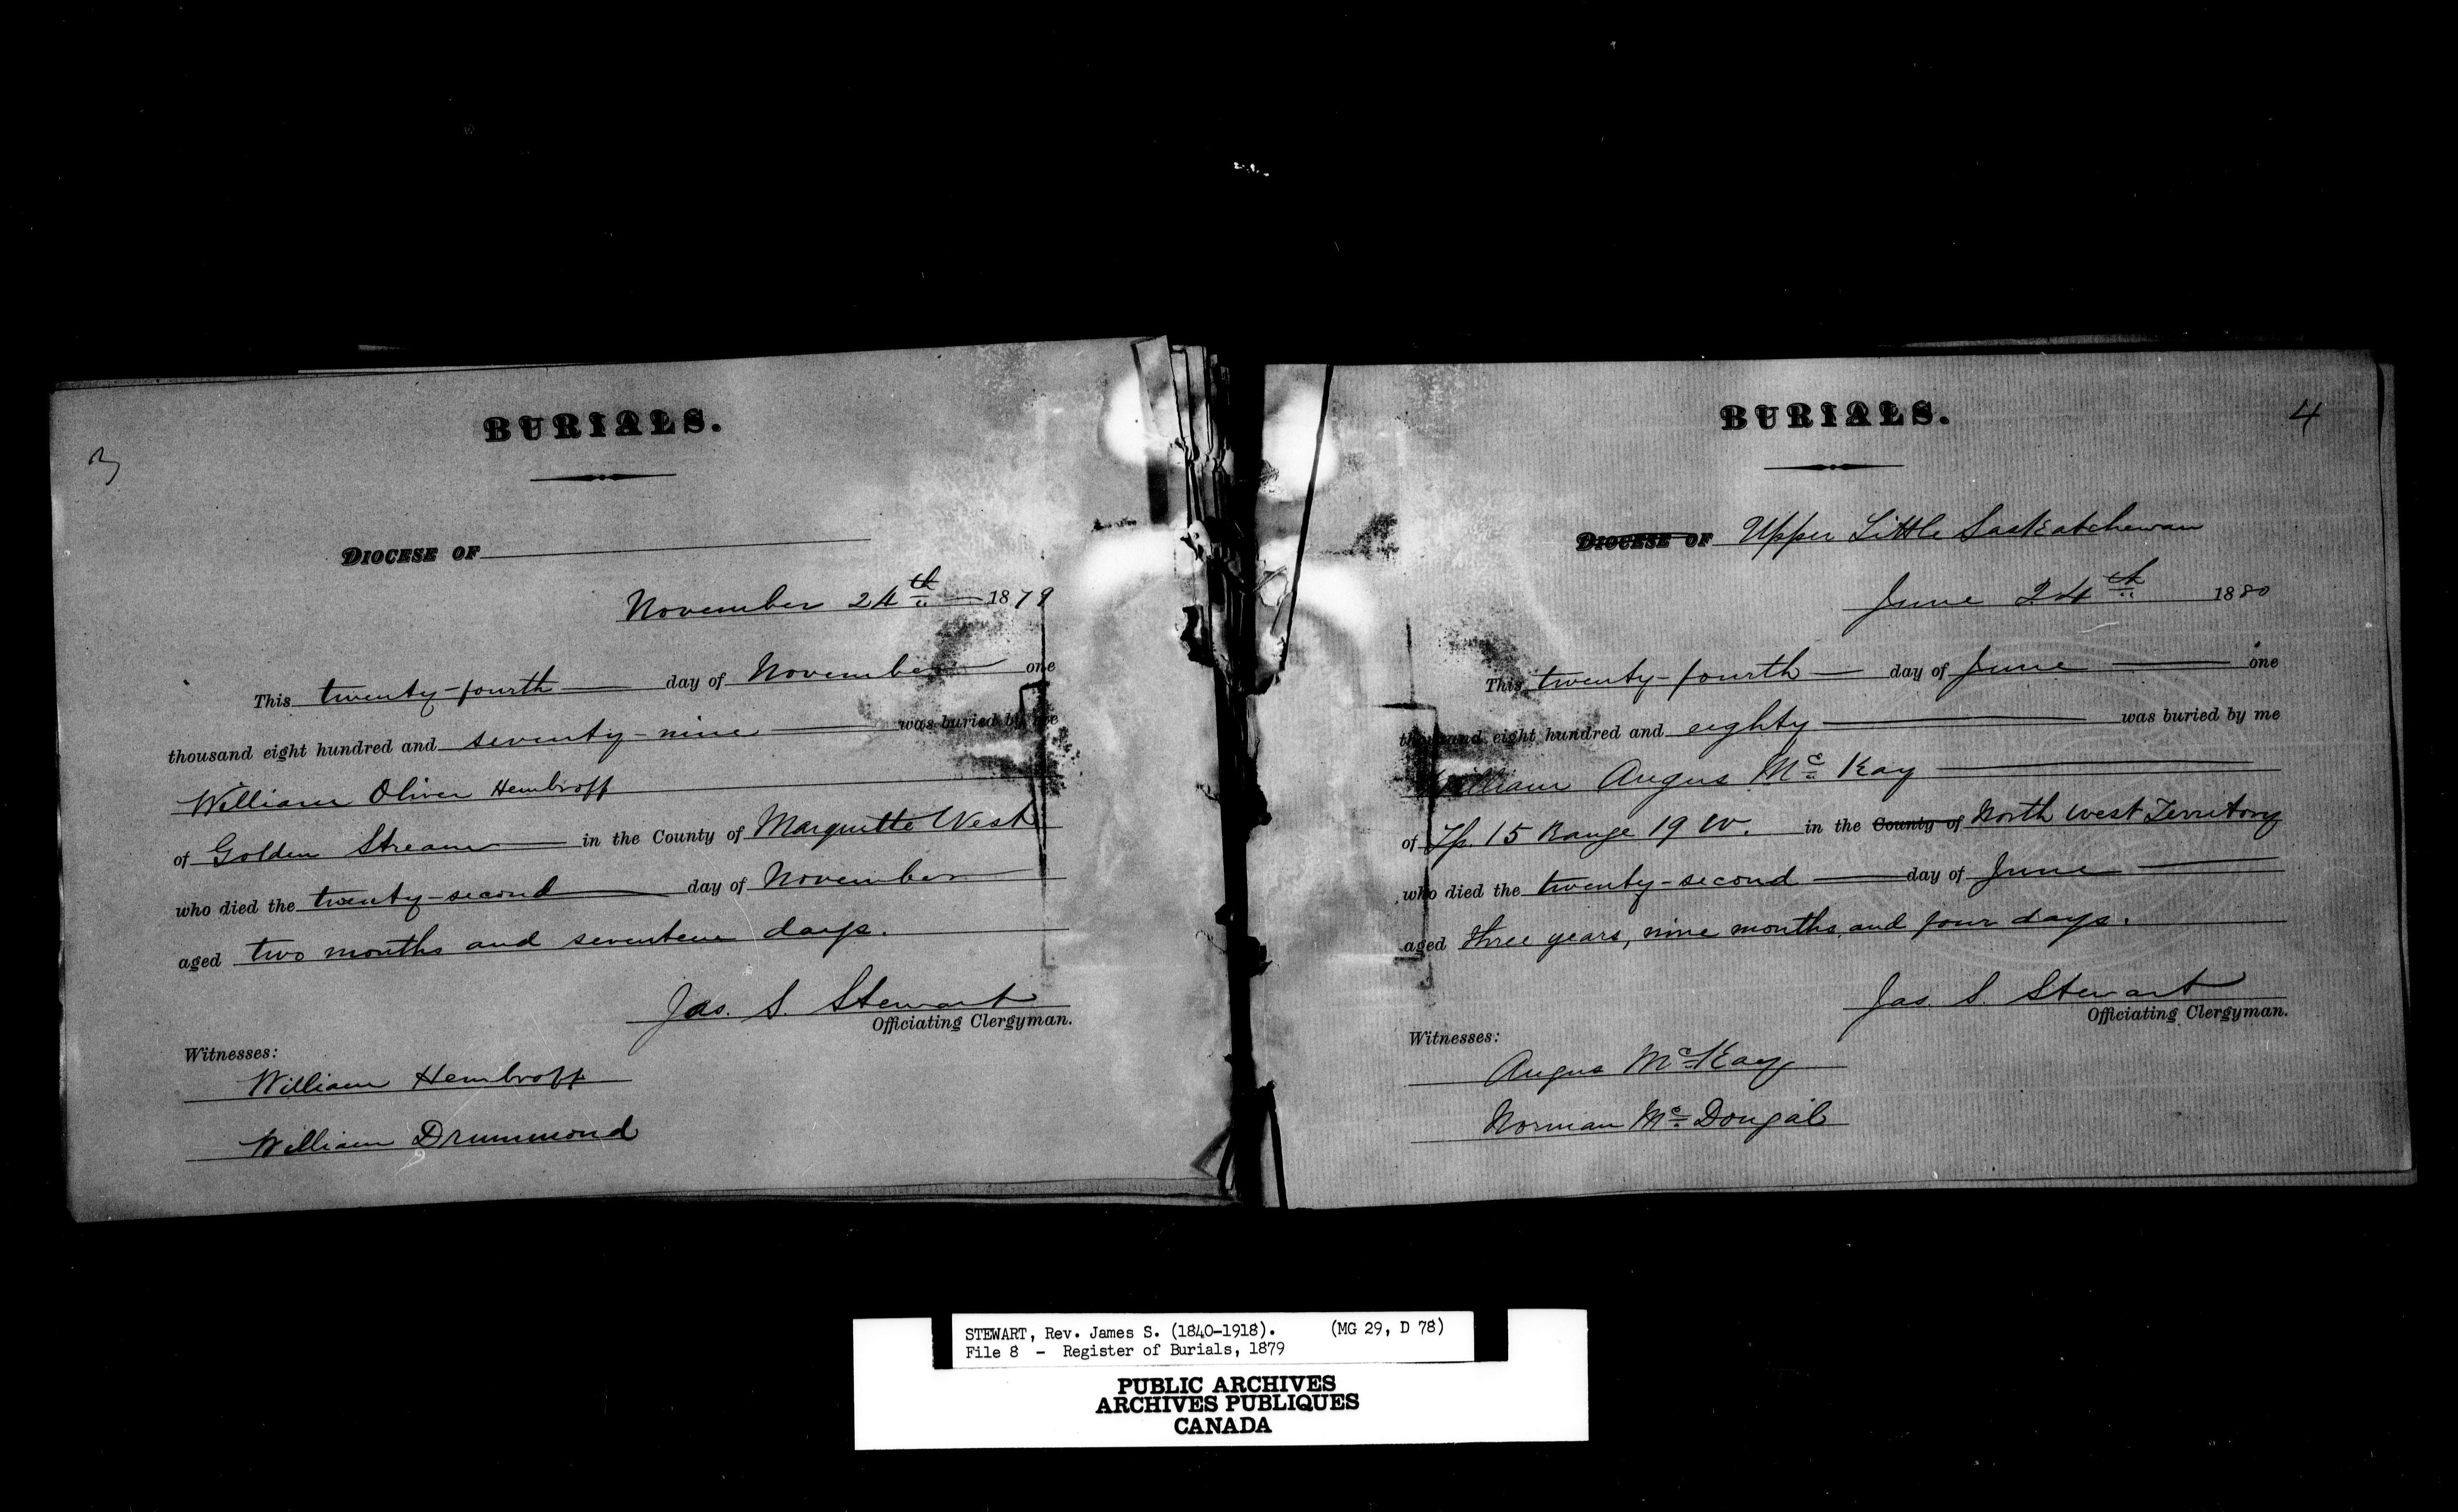 3
BURIALS.
DIOCESE OF
November 24th 1879
This twenty-fourth day of November one
thousand eight hundred and seventy-nine was buried by me
William Oliver Hembroff
of Golden Stream in the County of Marquette West
who died the twenty-second day of November
aged two months and seventeen days.
Jas. S. Stewart
Officiating Clergyman.
Witnesses:
William Hembroff
William Drummond
4
BURIALS.
DIOCESE OF Upper Little Saskatchewan
June 24th 1880
This twenty-fourth day of June one
thousand eight hundred and eighty was buried by me
William Angus McKay
of Tp. 15 Range 19 W. in the County of North West Territory
who died the twenty-second day of June
aged three years, nine months, and four days.
Jas. S. Stewart
Officiating Clergyman.
Witnesses:
Angus McKay
Norman McDougal
STEWART, Rev. James S. (1840-1918). (MG 29, D 78)
File 8 - Register of Burials, 1879
PUBLIC ARCHIVES
ARCHIVES PUBLIQUES
CANADA